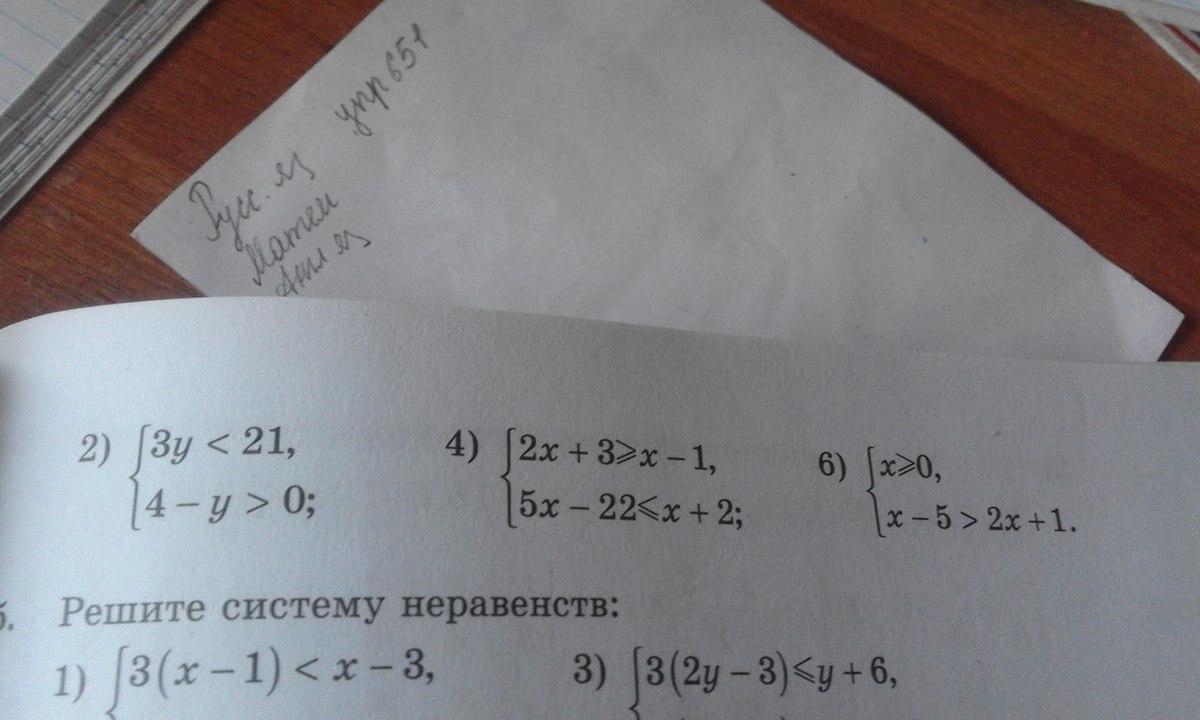 упр 651
Русс. яз
Матем
Англ яз
2) {3y < 21,
4 − y > 0;
4) {2x + 3⩾x − 1,
5x − 22⩽x + 2;
6) {x⩾0,
x − 5 > 2x + 1.
Решите систему неравенств:
1) {3(x − 1) < x − 3,
3) {3(2y − 3)⩽y + 6,